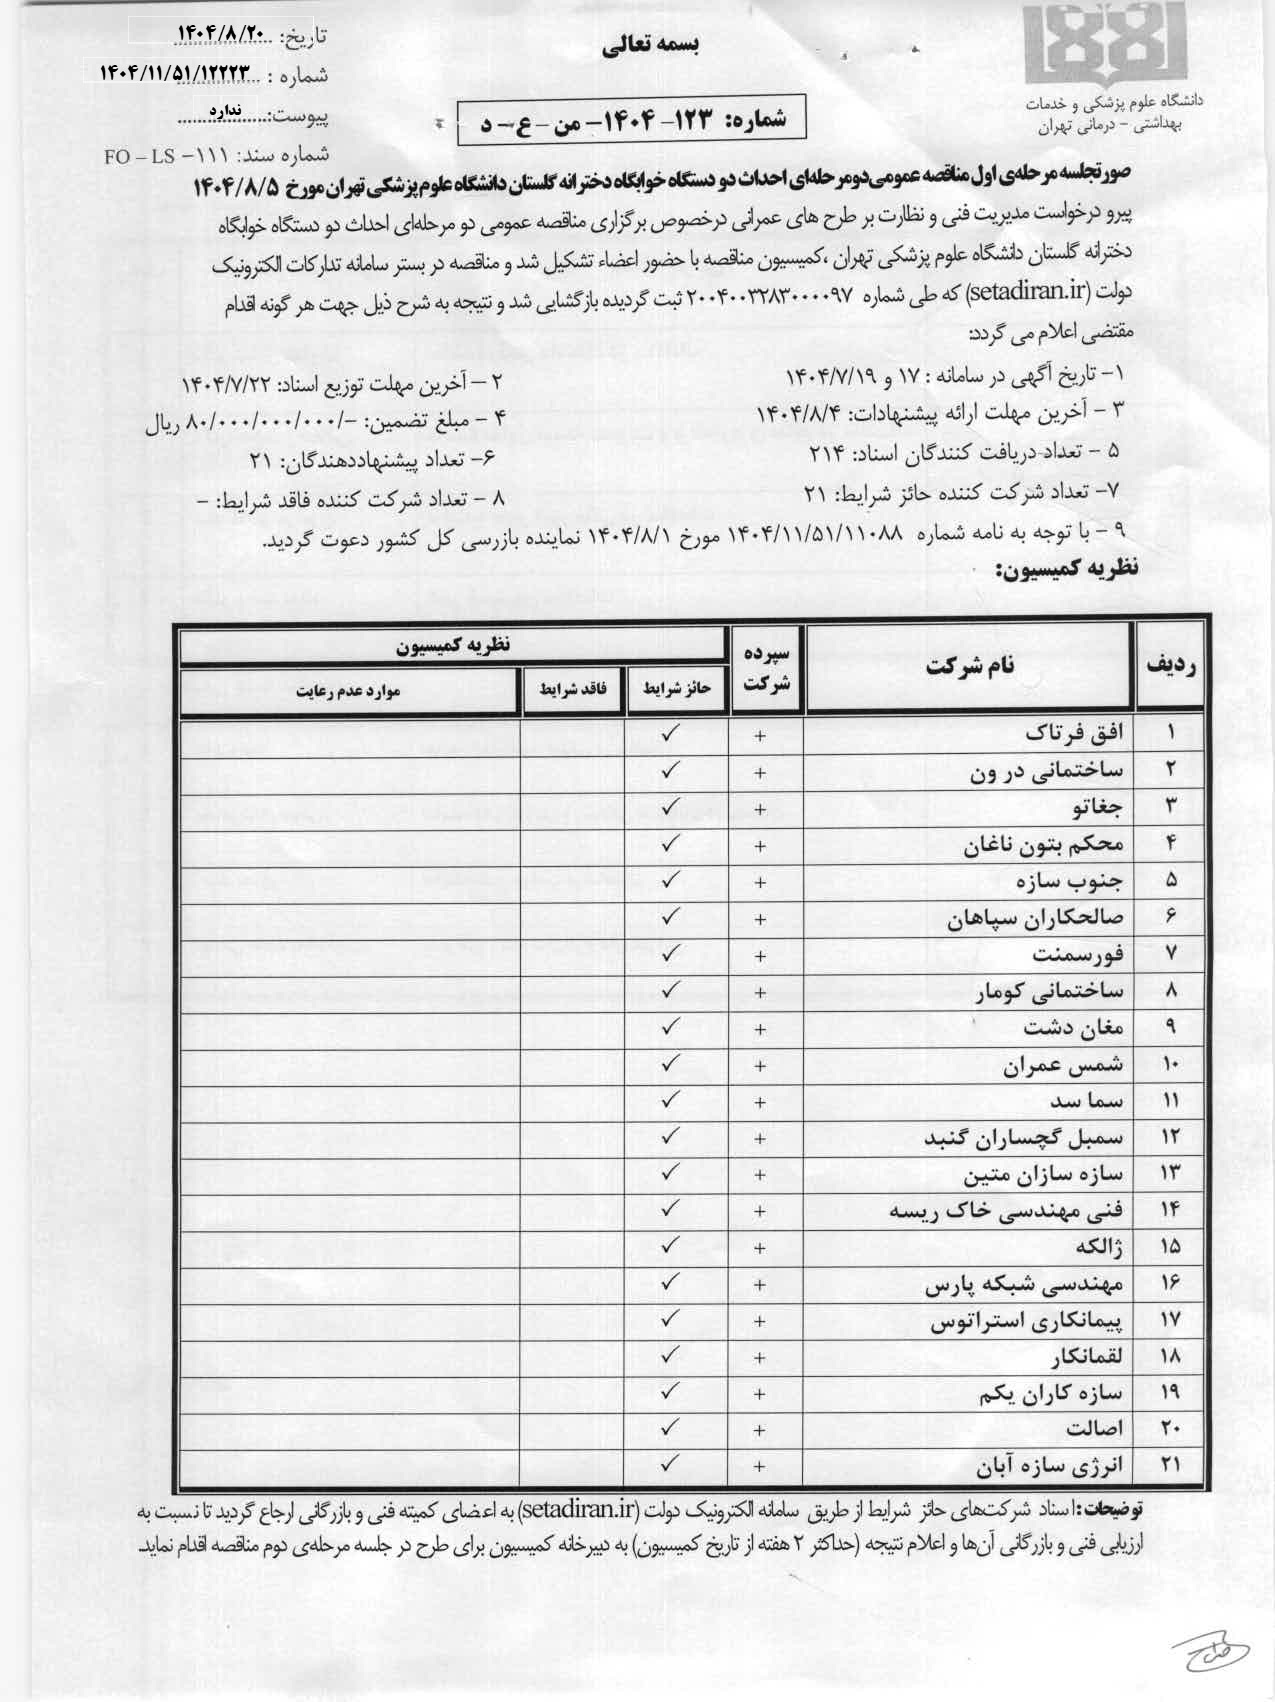 بسمه تعالی
تاریخ: ۱۴۰۴/۸/۲۰
شماره : ۱۴۰۴/۱۱/۵۱/۱۲۲۲۳
پیوست: ندارد
شماره سند: FO – LS –۱۱۱
دانشگاه علوم پزشکی و خدمات
بهداشتی – درمانی تهران
شماره: ۱۲۳- ۱۴۰۴- من – ع – د
صورتجلسه مرحله‌ی اول مناقصه عمومی دومرحله‌ای احداث دو دستگاه خوابگاه دخترانه گلستان دانشگاه علوم پزشکی تهران مورخ ۱۴۰۴/۸/۵
پیرو درخواست مدیریت فنی و نظارت بر طرح های عمرانی درخصوص برگزاری مناقصه عمومی دو مرحله‌ای احداث دو دستگاه خوابگاه
دخترانه گلستان دانشگاه علوم پزشکی تهران ،کمیسیون مناقصه با حضور اعضاء تشکیل شد و مناقصه در بستر سامانه تدارکات الکترونیک
دولت (setadiran.ir) که طی شماره ۲۰۰۴۰۰۳۲۸۳۰۰۰۰۹۷ ثبت گردیده بازگشایی شد و نتیجه به شرح ذیل جهت هر گونه اقدام
مقتضی اعلام می گردد:
۱- تاریخ آگهی در سامانه : ۱۷ و ۱۴۰۴/۷/۱۹ ۲ – آخرین مهلت توزیع اسناد: ۱۴۰۴/۷/۲۲
۳ – آخرین مهلت ارائه پیشنهادات: ۱۴۰۴/۸/۴ ۴ – مبلغ تضمین: -/۸۰/۰۰۰/۰۰۰/۰۰۰ ریال
۵ – تعداد دریافت کنندگان اسناد: ۲۱۴ ۶- تعداد پیشنهاددهندگان: ۲۱
۷- تعداد شرکت کننده حائز شرایط: ۲۱ ۸ – تعداد شرکت کننده فاقد شرایط: –
۹ – با توجه به نامه شماره ۱۴۰۴/۱۱/۵۱/۱۱۰۸۸ مورخ ۱۴۰۴/۸/۱ نماینده بازرسی کل کشور دعوت گردید.
نظریه کمیسیون:
ردیف نام شرکت سپرده شرکت نظریه کمیسیون
حائز شرایط فاقد شرایط موارد عدم رعایت
۱ افق فرتاک + ✓
۲ ساختمانی در ون + ✓
۳ جغاتو + ✓
۴ محکم بتون ناغان + ✓
۵ جنوب سازه + ✓
۶ صالحکاران سپاهان + ✓
۷ فورسمنت + ✓
۸ ساختمانی کومار + ✓
۹ مغان دشت + ✓
۱۰ شمس عمران + ✓
۱۱ سما سد + ✓
۱۲ سمبل گچساران گنبد + ✓
۱۳ سازه سازان متین + ✓
۱۴ فنی مهندسی خاک ریسه + ✓
۱۵ ژالکه + ✓
۱۶ مهندسی شبکه پارس + ✓
۱۷ پیمانکاری استراتوس + ✓
۱۸ لقمانکار + ✓
۱۹ سازه کاران یکم + ✓
۲۰ اصالت + ✓
۲۱ انرژی سازه آبان + ✓
توضیحات: اسناد شرکت‌های حائز شرایط از طریق سامانه الکترونیک دولت (setadiran.ir) به اعضای کمیته فنی و بازرگانی ارجاع گردید تا نسبت به
ارزیابی فنی و بازرگانی آن‌ها و اعلام نتیجه (حداکثر ۲ هفته از تاریخ کمیسیون) به دبیرخانه کمیسیون برای طرح در جلسه مرحله‌ی دوم مناقصه اقدام نماید.